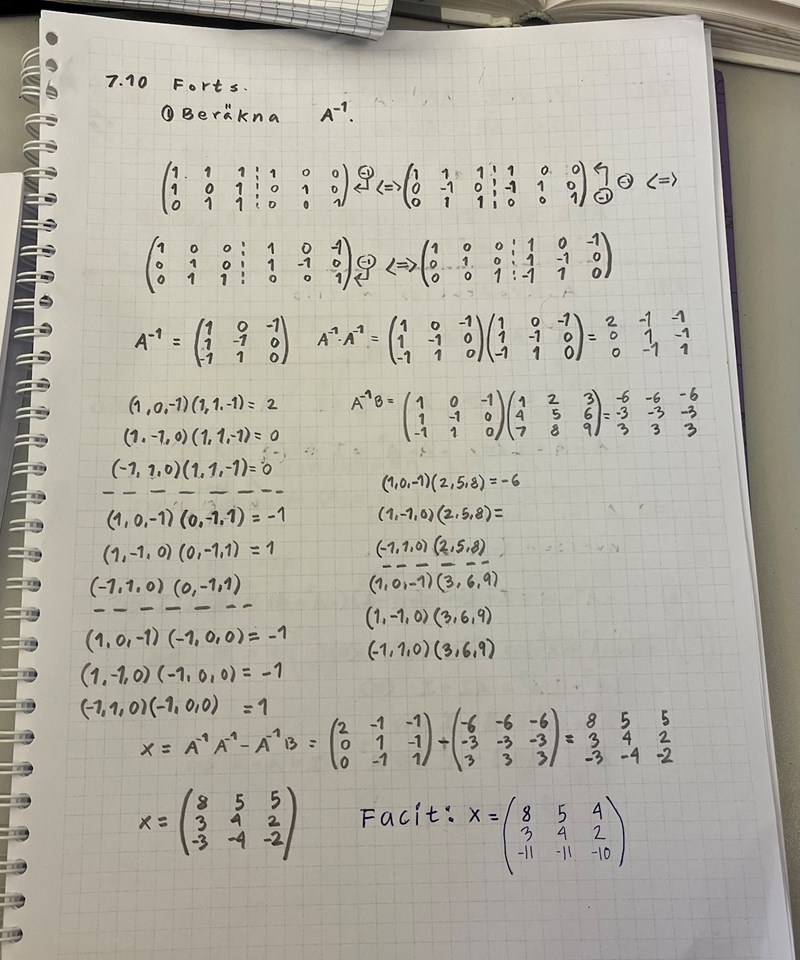 7.10 Forts.
① Beräkna A⁻¹.
(1 1 1 ¦ 1 0 0) (-1) <=> (1 1 1 ¦ 1 0 0)
(1 0 1 ¦ 0 1 0) (0 -1 0 ¦ -1 1 0) (-1) <=>
(0 1 1 ¦ 0 0 1) (0 1 1 ¦ 0 0 1) (-1)
(1 0 0 ¦ 1 0 -1) (-1) <=> (1 0 0 ¦ 1 0 -1)
(0 1 0 ¦ 1 -1 0) (0 1 0 ¦ 1 -1 0)
(0 1 1 ¦ 0 0 1) (0 0 1 ¦ -1 1 0)
A⁻¹ = (1 0 -1) A⁻¹·A⁻¹ = (1 0 -1) (1 0 -1) = 2 -1 -1
(1 -1 0) (1 -1 0) (1 -1 0) 0 1 -1
(-1 1 0) (-1 1 0) (-1 1 0) 0 -1 1
(1,0,-1)(1,1,-1)= 2
(1,-1,0)(1,1,-1)= 0
(-1,1,0)(1,1,-1)= 0
(1,0,-1)(0,-1,1) = -1
(1,-1,0)(0,-1,1) = 1
(-1,1,0)(0,-1,1)
(1,0,-1)(-1,0,0) = -1
(1,-1,0)(-1,0,0) = -1
(-1,1,0)(-1,0,0) = 1
A⁻¹B = (1 0 -1) (1 2 3) = -6 -6 -6
(1 -1 0) (4 5 6) -3 -3 -3
(-1 1 0) (7 8 9) 3 3 3
(1,0,-1)(2,5,8) = -6
(1,-1,0)(2,5,8)=
(-1,1,0)(2,5,8)
(1,0,-1)(3,6,9)
(1,-1,0)(3,6,9)
(-1,1,0)(3,6,9)
X = A⁻¹A⁻¹ - A⁻¹B = (2 -1 -1) - (-6 -6 -6) = 8 5 5
(0 1 -1) (-3 -3 -3) 3 4 2
(0 -1 1) (3 3 3) -3 -4 -2
X = (8 5 5)
(3 4 2)
(-3 -4 -2)
Facit: X = (8 5 4)
(3 4 2)
(-11 -11 -10)